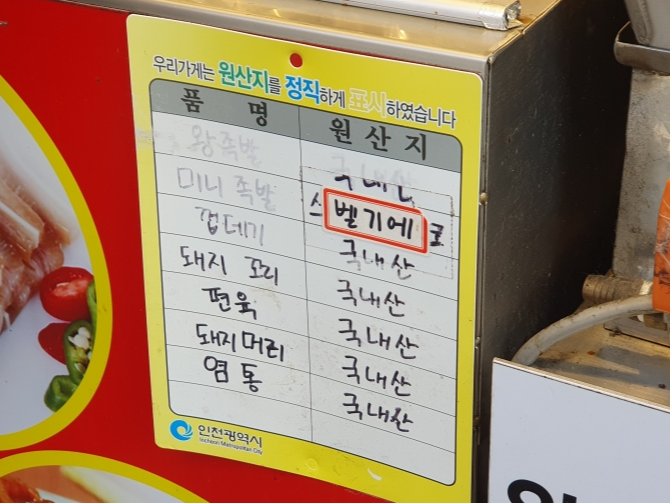 우리가게는 원산지를 정직하게 표시하였습니다
품 명 원 산 지
왕족발 국내산
미니 족발 벨기에
껍데기 국내산
돼지 꼬리 국내산
편육 국내산
돼지머리 국내산
염통 국내산
인천광역시
Incheon Metropolitan City